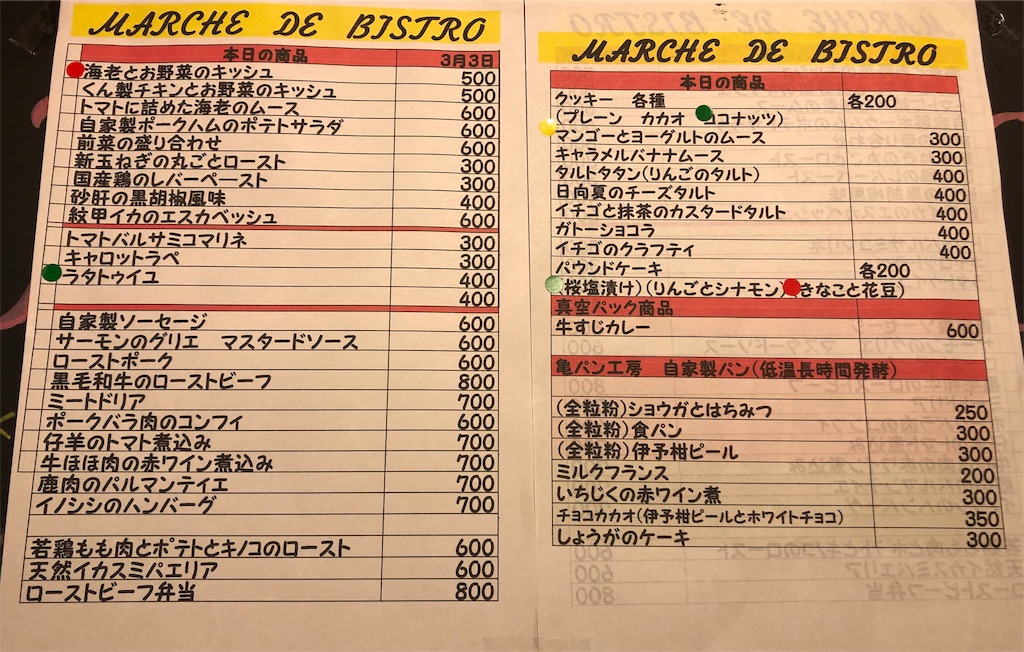 MARCHE DE BISTRO
本日の商品 3月3日
海老とお野菜のキッシュ 500
くん製チキンとお野菜のキッシュ 500
トマトに詰めた海老のムース 600
自家製ポークハムのポテトサラダ 600
前菜の盛り合わせ 600
新玉ねぎの丸ごとロースト 300
国産鶏のレバーペースト 300
砂肝の黒胡椒風味 400
紋甲イカのエスカベッシュ 600
トマトバルサミコマリネ 300
キャロットラペ 300
ラタトゥイユ 400
400
自家製ソーセージ 600
サーモンのグリエ マスタードソース 600
ローストポーク 600
黒毛和牛のローストビーフ 800
ミートドリア 700
ポークバラ肉のコンフィ 600
仔羊のトマト煮込み 700
牛ほほ肉の赤ワイン煮込み 700
鹿肉のパルマンティエ 700
イノシシのハンバーグ 700
若鶏もも肉とポテトとキノコのロースト 600
天然イカスミパエリア 600
ローストビーフ弁当 800
MARCHE DE BISTRO
本日の商品
クッキー 各種 各200
(プレーン カカオ ココナッツ)
マンゴーとヨーグルトのムース 300
キャラメルバナナムース 300
タルトタタン(りんごのタルト) 400
日向夏のチーズタルト 400
イチゴと抹茶のカスタードタルト 400
ガトーショコラ 400
イチゴのクラフティ 400
パウンドケーキ 各200
桜塩漬け)(りんごとシナモン) きなこと花豆)
真空パック商品
牛すじカレー 600
亀パン工房 自家製パン(低温長時間発酵)
(全粒粉)ショウガとはちみつ 250
(全粒粉)食パン 300
(全粒粉)伊予柑ピール 300
ミルクフランス 200
いちじくの赤ワイン煮 300
チョコカカオ(伊予柑ピールとホワイトチョコ) 350
しょうがのケーキ 300